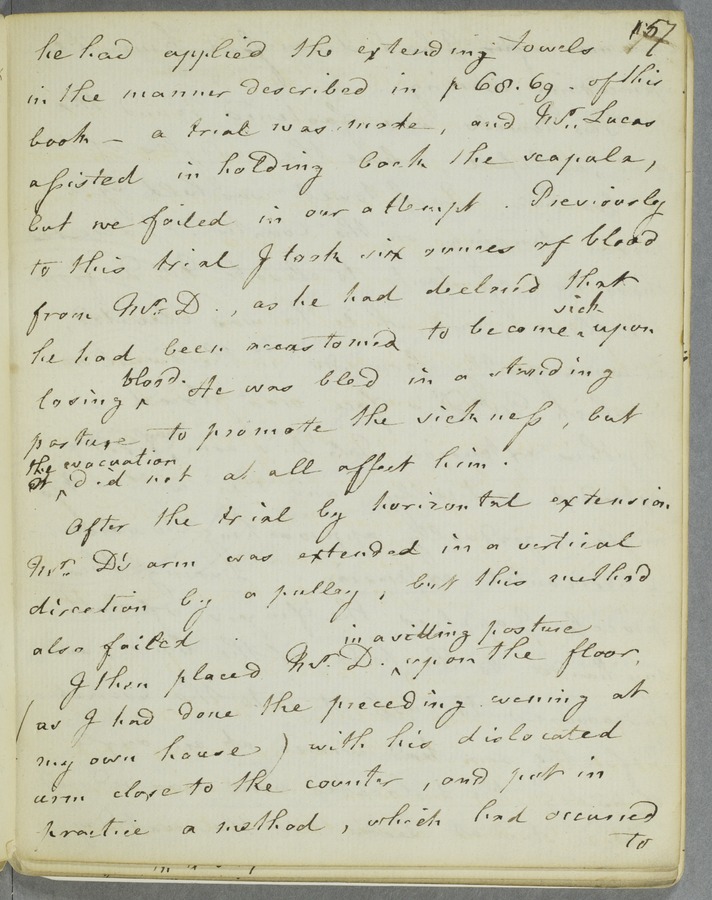 157
he had applied the extending towels
in the manner described in p 68. 69. of this
book — a trial was made, and Mr. Lucas
assisted in holding back the scapula,
but we failed in our attempt. Previously
to this trial I took six ounces of blood
from Mr. D., as he had declared that
he had been accustomed to become sick upon
losing blood. He was bled in a standing
posture to promote the sickness, but
the evacuation did not at all affect him.
After the trial by horizontal extension
Mr. D's arm was extended in a vertical
direction by a pulley, but this method
also failed.
I then placed Mr. D. in a sitting posture upon the floor,
(as I had done the preceding evening at
my own house) with his dislocated
arm close to the counter, and put in
practice a method, which had occurred
to